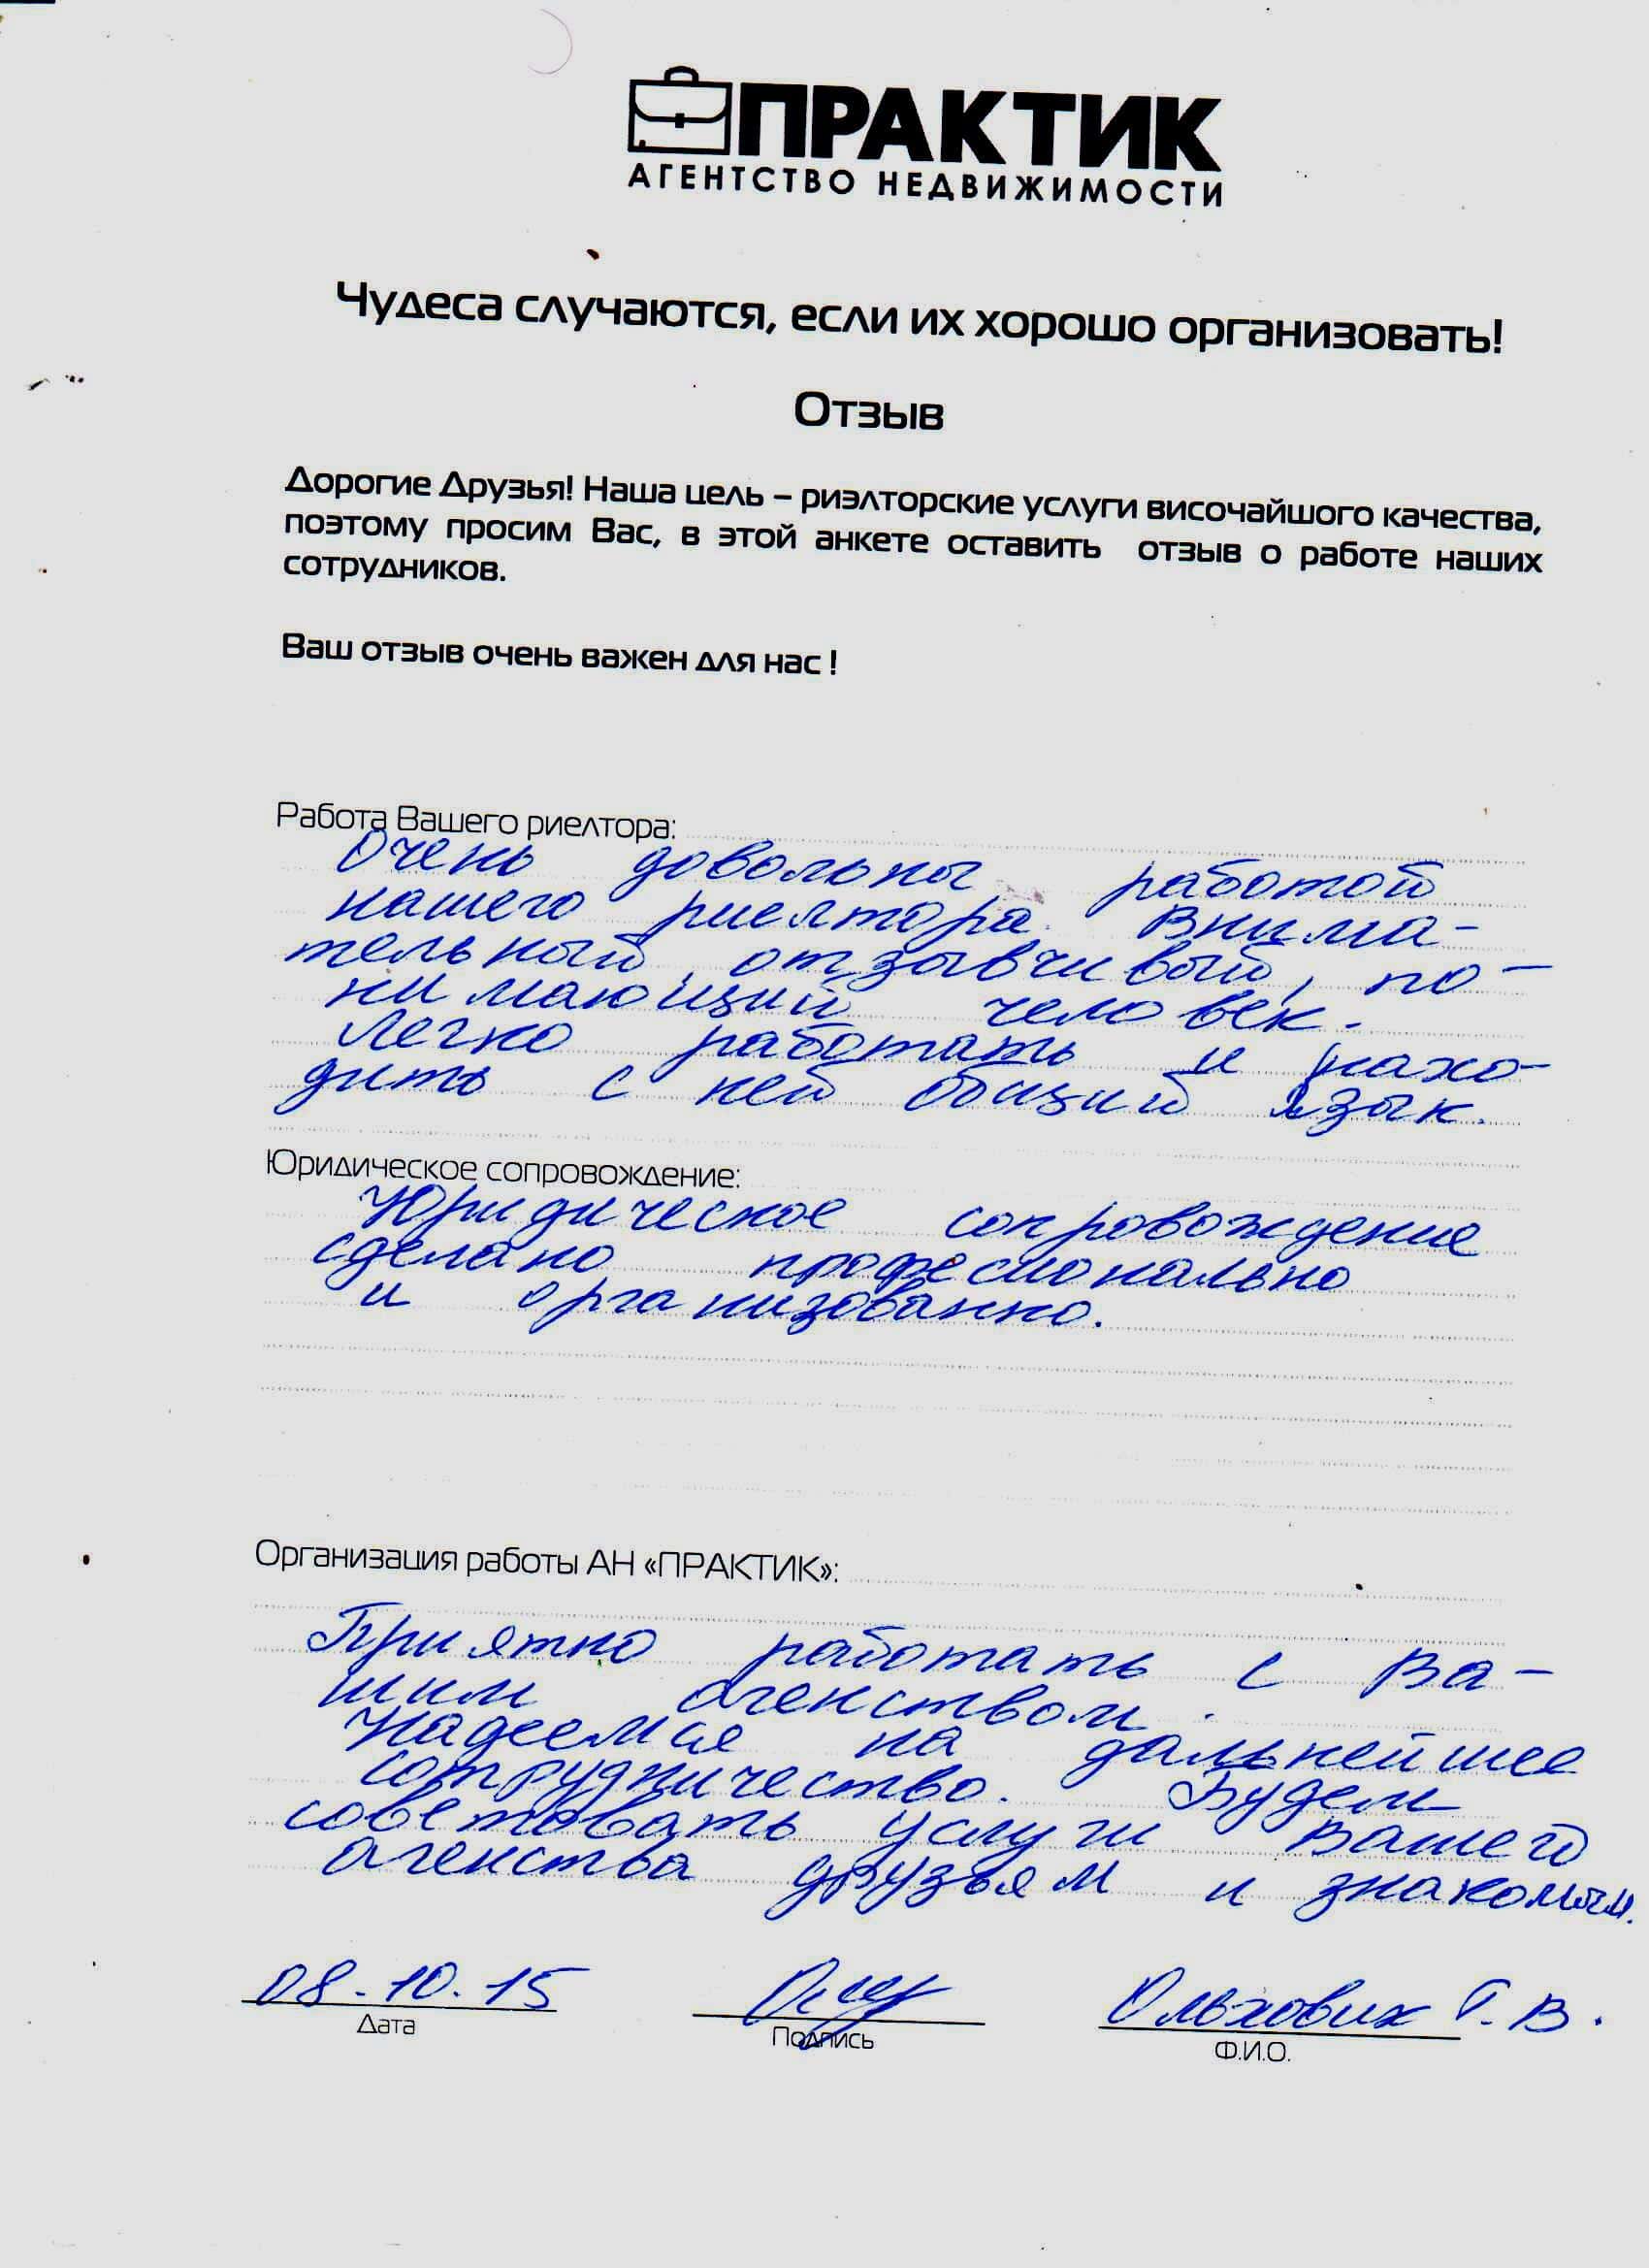 ПРАКТИК
АГЕНТСТВО НЕДВИЖИМОСТИ
Чудеса случаются, если их хорошо организовать!
Отзыв
Дорогие Друзья! Наша цель – риэлторские услуги височайшого качества,
поэтому просим Вас, в этой анкете оставить отзыв о работе наших
сотрудников.
Ваш отзыв очень важен для нас !
Работа Вашего риелтора:
Очень довольны работой
нашего риелтора. Внима-
тельный, отзывчивый, по-
нимающий человек.
Легко работать и нахо-
дить с ней общий язык.
Юридическое сопровождение:
Юридическое сопровождение
сделано професионально
и организованно.
Организация работы АН «ПРАКТИК»:
Приятно работать с Ва-
шим агенством.
Надеемся на дальнейшее
сотрудничество. Будем
советовать услуги Вашего
агенства друзьям и знакомым.
08.10.15 Ольхович Г.В.
Дата Подпись Ф.И.О.